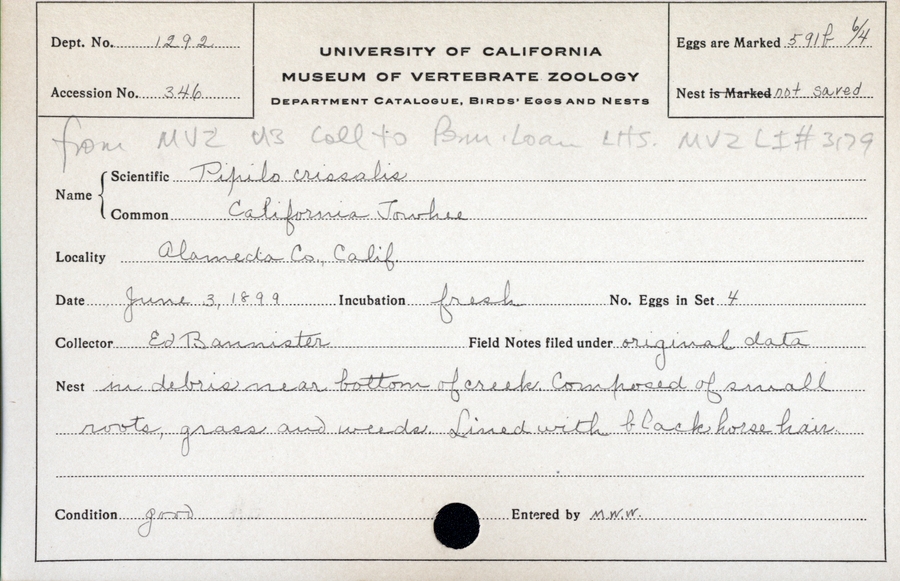 Dept. No. 1292
UNIVERSITY OF CALIFORNIA
MUSEUM OF VERTEBRATE ZOOLOGY
DEPARTMENT CATALOGUE, BIRDS' EGGS AND NESTS
Eggs are Marked 591f 6/4
Accession No. 346
Nest is Marked not saved
from MVZ coll to Loan LHS. MVZ LI# 3179
Name Scientific Pipilo crissalis
Common California Towhee
Locality Alameda Co., Calif.
Date June 3, 1899 Incubation fresh No. Eggs in Set 4
Collector Ed Bannister Field Notes filed under original data
Nest in debris near bottom of creek. Composed of small
roots, grass and weeds. Lined with black horse hair.
Condition good Entered by M.W.W.